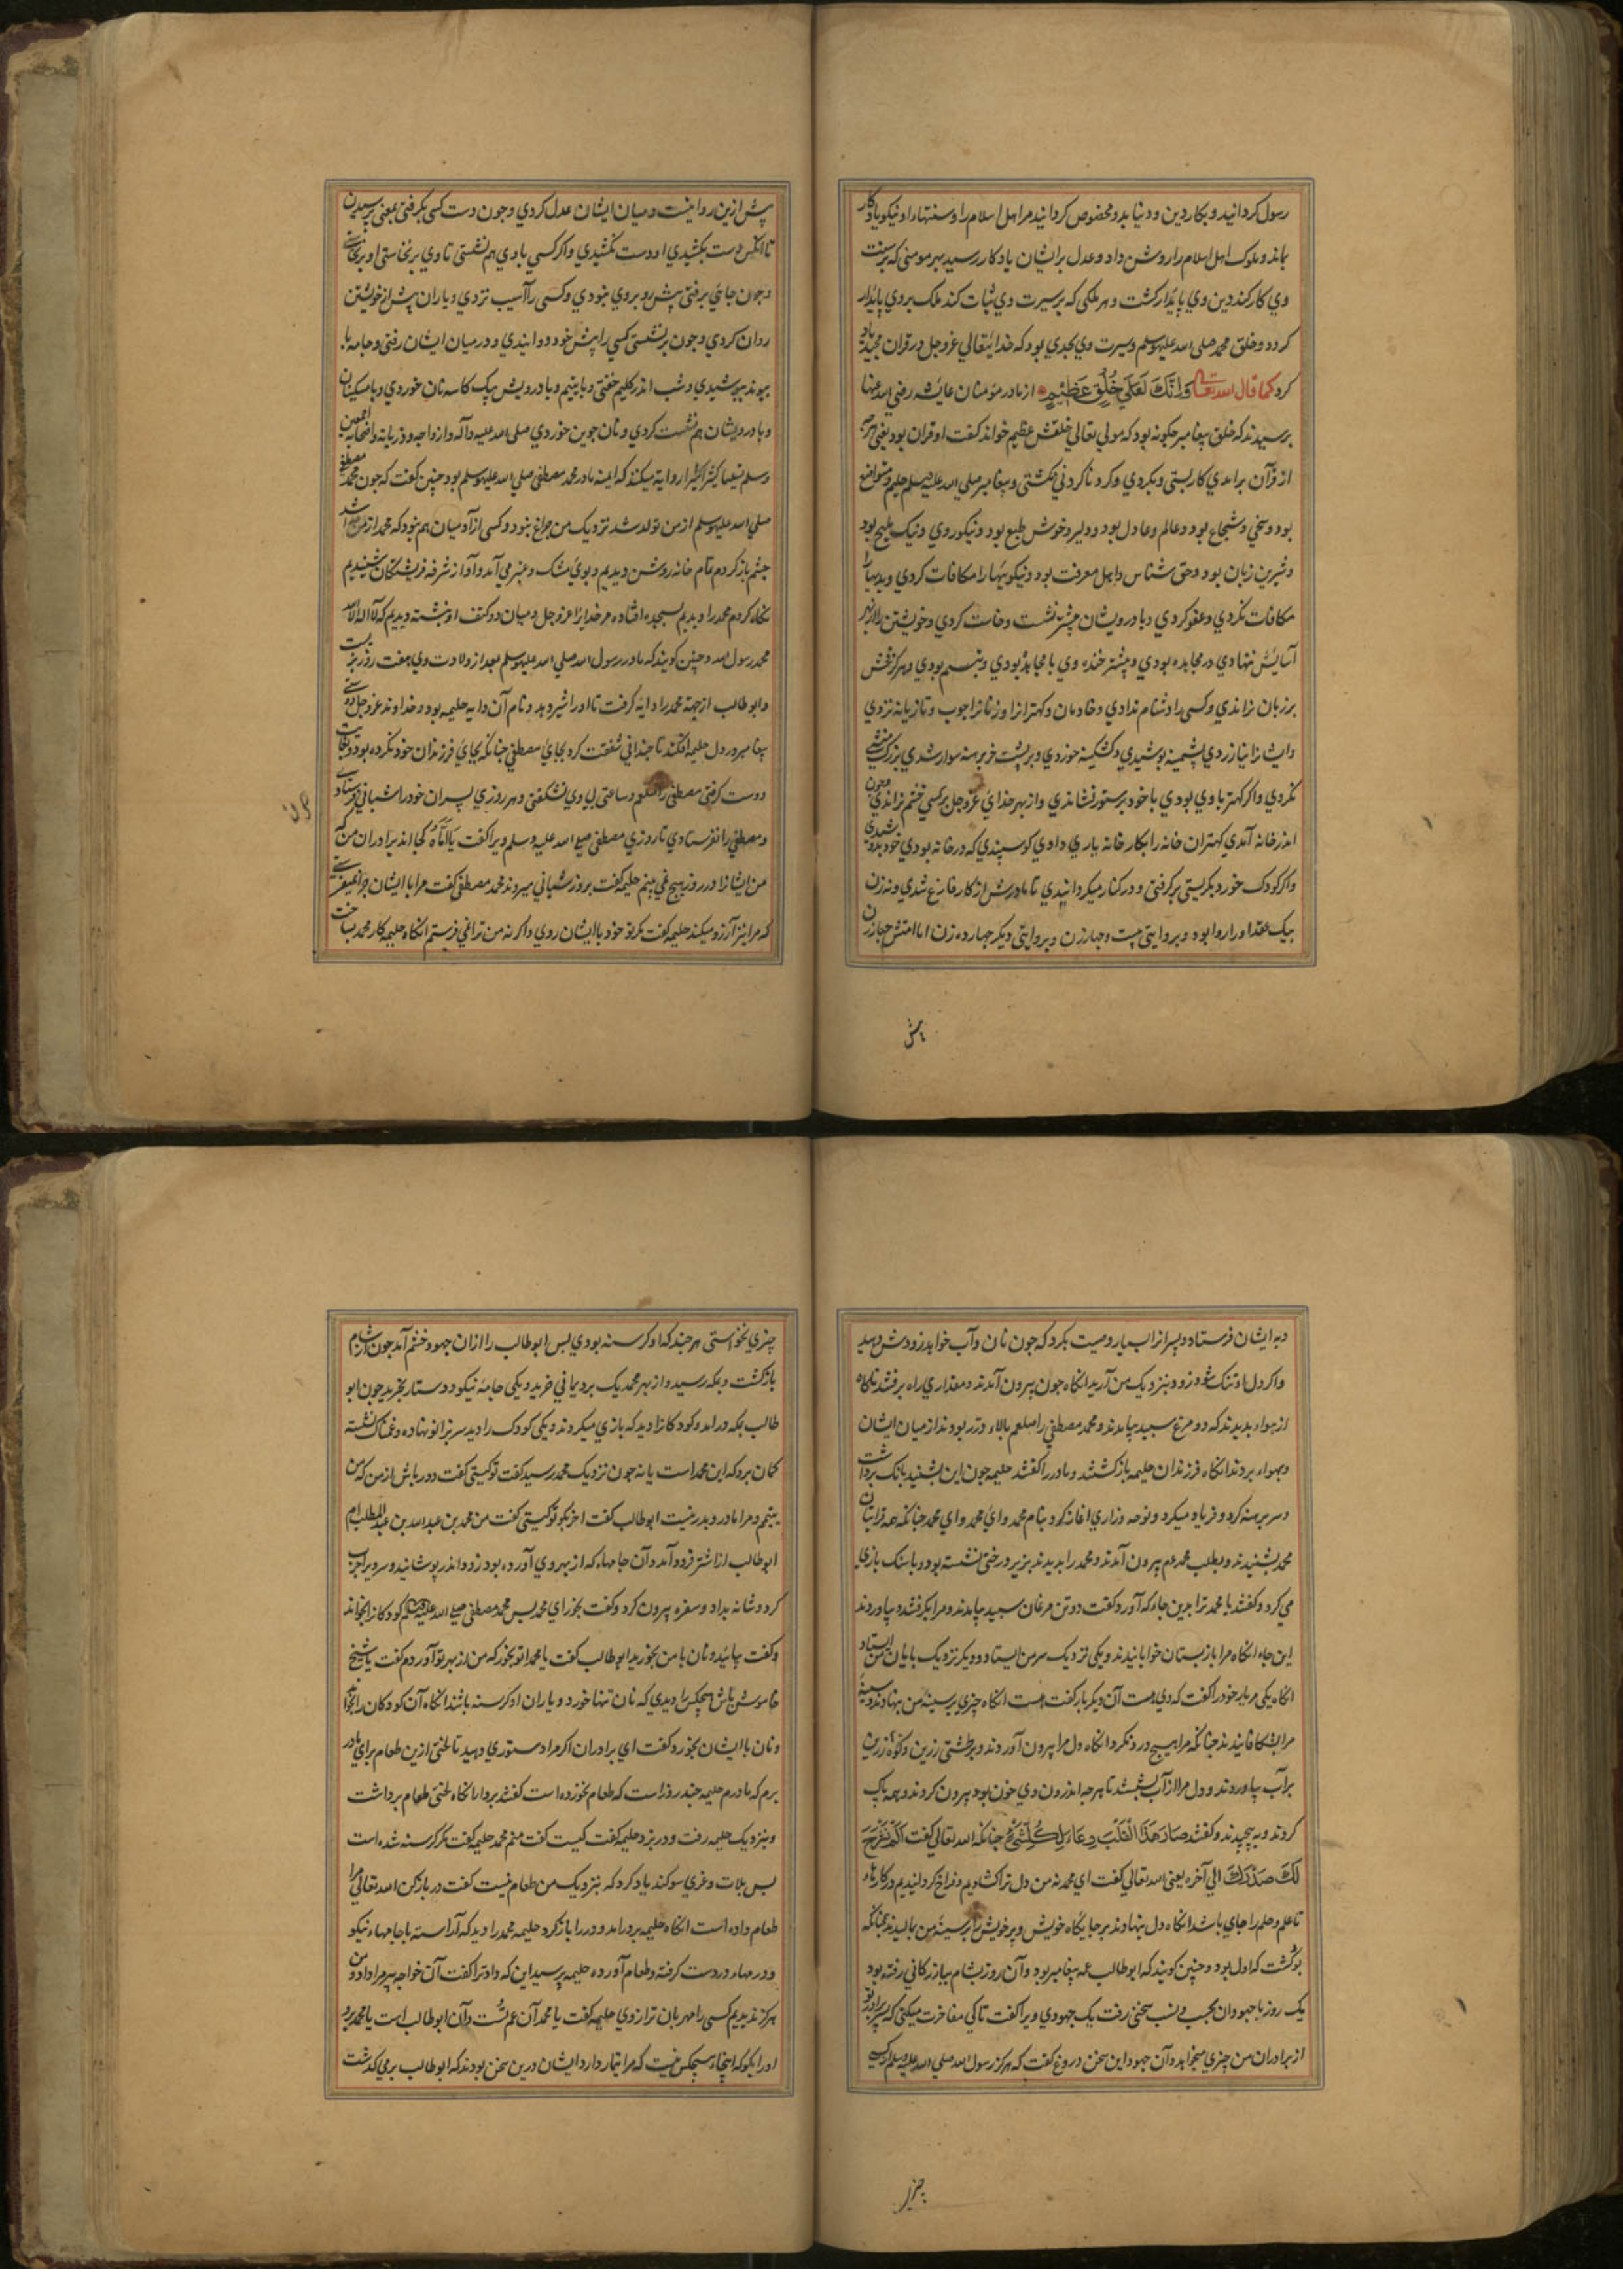 رسول کردانید و بکار دین و دنیا بدو مخصوص کردانید مر اهل اسلام را و سنتهاء او نیکو یادکار
بماند و ملوک اهل اسلام را روشن داد و عدل بر ایشان یادکار رسید هر مومنی که بر سنت
وی کار کند دین وی پایدار کشت و هر ملکی که بر سیرت وی ثبات کند ملک بروی پایدار
کردد و خلق محمد صلی الله علیه وسلم و سیرت وی بحدی بود که خدایتعالی عز و جل در قران مجید یاد
کرد کما قال الله تعالی وَاِنَّكَ لَعَلَى خُلُقٍ عَظِيْمٍ از مادر مؤمنان عایشه رضی الله عنها
پرسیدند که خلق پیغامبر چکونه بود که مولی تعالی خلقش عظیم خواند کفت او قران بود یعنی هرچه
از قرآن برامدی کار بستی و بکردی و کرد ناکردنی نکشتی و پیغامبر صلی الله علیه وسلم حلیم و متواضع
بود و سخی و شجاع بود و عالم و عادل بود و دلیر و خوش طبع بود و نیکوروی و نیک ملیح بود
و شیرین زبان بود و حق شناس و اهل معرفت بود و نیکوییها را مکافات کردی و بدیها را
مکافات نکردی و عفو کردی و با درویشان بیشتر نشست و خاست کردی و خویشتن را از بهر
آسایش ننهادی در مجاهده بودی و بیشتر خنده وی با مجاهد بودی و تبسم بودی و هرکز فحش
بر زبان نراندی و کسی را دشنام ندادی و خادمان و کهتران را و زنان را چوب و تازیانه نزدی
و ایشان را نیازردی پشمینه پوشیدی و کشکینه خوردی و بر پشت خر برهنه سوار شدی بزرک منشی
نکردی و اکر کهتر با وی بودی با خود بر ستور نشاندی و از بهر خدای عز و جل بر کسی خشم نراندی و چون
اندر خانه آمدی کهتران خانه را بکار خانه یاری دادی کوسپندی که در خانه بودی خود بدوشیدی
و اکر کودک خورد بکریستی بر کرفتی و در کنار میکردانیدی تا مادرش از کار فارغ شدی و نه زن
بیک عقد او را روا بود و بروایتی بیست و چهار زن و بروایتی دیکر چهارده زن اما امتش چهار زن
بیش
پیش ازین روا نیست و میان ایشان عدل کردی و چون دست کسی بکرفتی بمعنی پرسیدن
تا انکس دست بکشیدی او دست نکشیدی و اکر کسی با وی هم نشستی تا وی برنخاستی او برنخاستی
و چون جایی برفتی پیش رو بر وی نبودی و کسی را آسیب نزدی و یاران پیش از خویشتن
روان کردی و چون بر نشستی کسی را پیش خود دوانیدی و در میان ایشان رفتی و جامه با
پیوند پوشیدی و شب اندر کلیم خفتی و با یتیم و با درویش بیک کاسه نان خوردی و با مسکینان
و با درویشان هم نشست کردی و نان جوین خوردی صلی الله علیه و آله و ازواجه و ذریاته و اصحابه اجمعین
وسلم تسلیما کثیرا کثیرا روایة میکنند که ایمنه مادر محمد مصطفی صلی الله علیه وسلم بود چنین کفت که چون محمد مصطفی
صلی الله علیه وسلم از من تولد شد نزدیک من چراغ نبود و کسی از آدمیان هم نبود که محمد از من جدا شد
چشم باز کردم تمام خانه روشن دیدیم و بوی مشک و عنبر می آمد و آواز شرفه فرشتکان شنیدیم
نکاه کردم محمد را دیدیم بسجده افتاده مر خدایرا عز و جل و میان دو کتف او نبشته دیدیم که لا اله الا الله
محمد رسول الله و چنین کویند که مادر رسول الله صلی الله علیه وسلم بعد از ولادت وی هفت روز بزیست
و ابوطالب از جهة محمد را دایه کرفت تا او را شیر دهد و نام آن دایه حلیمه بود و خداوند عز و جل دوستی
پیغامبر در دل حلیمه افکند تا چندانی شفقت کرد بجای مصطفی چنانکه بجای فرزندان خود نکرده بود و بغایت
دوست کرفتی مصطفی را صلعم و ساعتی بی وی نشکفتی و هر روزی پسران خود را شبانی فرستادی
و مصطفی را نفرستادی تا روزی مصطفی صلی الله علیه وسلم ویرا کفت یا اماه کجا اند برادران من که
من ایشانرا در روز هیچ نمی بینم حلیمه کفت بروز شبانی میروند محمد مصطفی کفت مرا با ایشان چرا نمیفرستی
که مرا نیز آرزو میکند حلیمه کفت مکر تو خود با ایشان روی و اکر نه من ترا نمی فرستم انکاه حلیمه کار محمد بساخت
و به ایشان فرستاد و پسرانرا بسیار وصیت بکرد که چون نان و آب خواهد زودش دهید
و اکر دل او تنک شود زود بنزدیک من آرید انکاه چون بیرون آمدند و مقداری راه برفتند ناکاه
از هواء بدیدند که دو مرغ سپید بیامدند و محمد مصطفی را صلعم بالاء در ربودند از میان ایشان
و بهواء بردند انکاه فرزندان حلیمه بازکشتند و مادر را کفتند حلیمه چون این بشنید بانک برداشت
و سر برهنه کرد و فریاد میکرد و نوحه و زاری اغاز کرد بنام محمد وای محمد وای محمد چنانکه همه قرابتان
محمد بشنیدند و بطلب محمد هم بیرون آمدند و محمد را بدیدند بزیر درختی نشسته بود و با سنک بازی
می کرد و کفتند یا محمد ترا بدین جاء که آورد و کفت دو تن مرغان سپید بیامدند و مرا بکرفتند و بیاوردند
این جاء انکاه مرا باز بستان خوابانیدند و یکی نزدیک سر من ایستاد و دیکر نزدیک پایان من ایستاد
انکاه یکی مر یار خود را کفت که وی هست آن دیکر یار کفت هست انکاه چیزی بر سینه من بنهادند و سینهٔ
مرا بشکافانیدند چنانکه مرا هیچ درد نکرد انکاه دل مرا بیرون آوردند و بر طشتی زرین و کوزهٔ زرین
پر آب بیاوردند و دل مرا از آب بشستند تا هرچه اندرون وی خون بود بیرون کردند و همه پاک
کردند و به پیچیدند و کفتند صَارَ هَذَا الْقَلْبَ وِعَاءَ لِكُلِّ شَيْءٍ چنانکه الله تعالی کفت اَلَمْ نَشْرَحْ
لَكَ صَدْرَكَ الی آخره یعنی الله تعالی کفت ای محمد نه من دل ترا کشادیم و فراخ کردانیدیم در کارها و
تا علم و حلم را جای باشد انکاه دل بنهادند بر جایکاه خویش و پر خویش را بر سینهٔ من بمالیدند همچنانکه
بوکشت که اول بود و چنین کویند که ابوطالب عم پیغامبر بود و آن روز بشام ببازرکانی رفته بود
یک روز با جهودان بحسب و نسب سخنی رفت یک جهودی ویرا کفت تا کی مفاخرت میکنی که پسر برادر تو
از برادران من چیزی میخواهد و آن جهود این سخن دروغ کفت که هرکز رسول الله صلی الله علیه وسلم از کسی
چیزی
چیزی نخواستی هر چند که او کرسنه بودی پس ابوطالب را از آن جهود خشم آمد چون از شام
بازکشت و بمکه رسید و از بهر محمد یک برد یمانی خرید و یکی جامهٔ نیکو و دستار بخرید چون ابو
طالب بمکه درامد و کودکانرا دید که بازی میکردند و یکی کودک را دید سر بزانو نهاده و غمناک نشسته
کمان برد که این محمد است یا نه چون نزدیک محمد رسید کفت تو کیستی کفت دور باش از من که من
یتیم و مرا مادر و پدر نیست ابوطالب کفت اخر بکو تو کیستی کفت من محمد بن عبدالله بن عبدالمطلب ام
ابوطالب از اشتر فرود آمد و آن جامهاء که از بهر وی آورده بود زود اندر پوشانید و سر ویرا چرب
کرد و شانه بداد و سفره بیرون کرد و کفت بخور ای محمد پس محمد مصطفی صلی الله علیه وسلم کودکانرا بخواند
و کفت بیائید و نان با من بخورید ابوطالب کفت یا محمد تو بخور که من از بهر تو آوردم کفت یا شیخ
خاموش باش هیچکس را دیدی که نان تنها خورد و یاران او کرسنه باشند انکاه آن کودکان را بخواند
و نان با ایشان بخورد و کفت ای برادران اکر مرا دستوری دهید تا لختی ازین طعام برای مادر
برم که مادرم حلیمه چند روز است که طعام نخورده است کفتند بردار انکاه لختی طعام برداشت
و بنزدیک حلیمه رفت و در بزد حلیمه کفت کیست کفت منم محمد حلیمه کفت مکر کرسنه شده است
پس بلات و عزی سوکند یاد کرد که بنزدیک من طعام نیست کفت در باز کن الله تعالی مرا
طعام داده است انکاه حلیمه بر درامد و در را باز کرد حلیمه محمد را دید که آراسته با جامهاء نیکو
و در مهار در دست کرفته و طعام آورده حلیمه پرسید این که داد ترا کفت آن خواجه پیر مرا داد و من
هرکز ندیدیم کسی را مهربان تر از وی حلیمه کفت یا محمد آن عم تست و آن ابوطالب است یا محمد برو
او را بکو که اینجا هیچکس نیست که مرا تیمار دارد ایشان درین سخن بودند که ابوطالب بر می کذشت